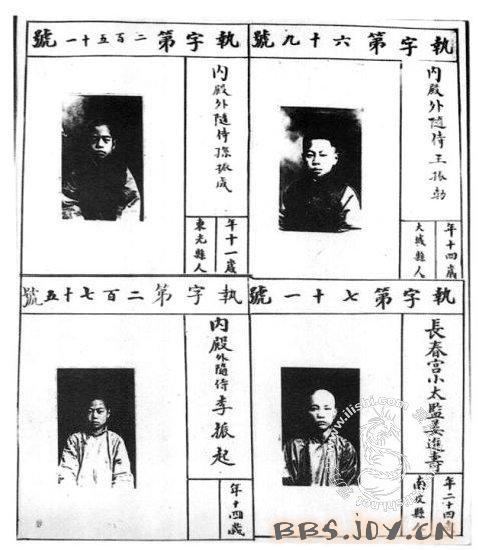 執字第六十九號
內殿外隨侍王振
年十四歲
大城縣人
執字第二百五十一號
內殿外隨侍孫振成
年十一歲
東光縣人
執字第七十一號
長春宮小太監姜進壽
年二十四歲
南皮縣人
執字第二百七十五號
內殿外隨侍李振起
年十四歲
www.ilishi.com
BBS.JOY.CN